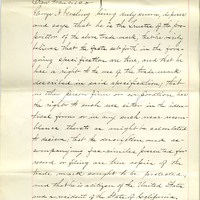 San Francisco
being duly sworn, deposes
and says that he is the Cashier of the pro-
prietor of the above Trade Mark, that he verily
believes that the facts set forth in the fore-
going specification are true, and that he
has a right to the use of the trade mark
described in said specification, that
no other person firm or corporation has
the right to such use either in the iden-
tical form or in any such near resem-
blance thereto as might be calculated
to deceive, that the description and ac-
companying facsimiles presented for
record or filing are true copies of the
trade mark sought to be protected,
and that he is a citizen of the United States
and a resident of the State of California.